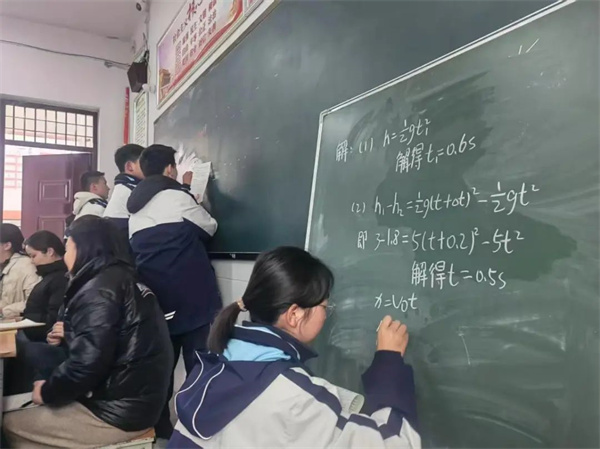 解：(1) h=½gt₁²
解得t₁=0.6s
(2) h₁-h₂=½g(t+Δt)²-½gt²
即 3-1.8=5(t+0.2)²-5t²
解得t=0.5s
x=v₀t